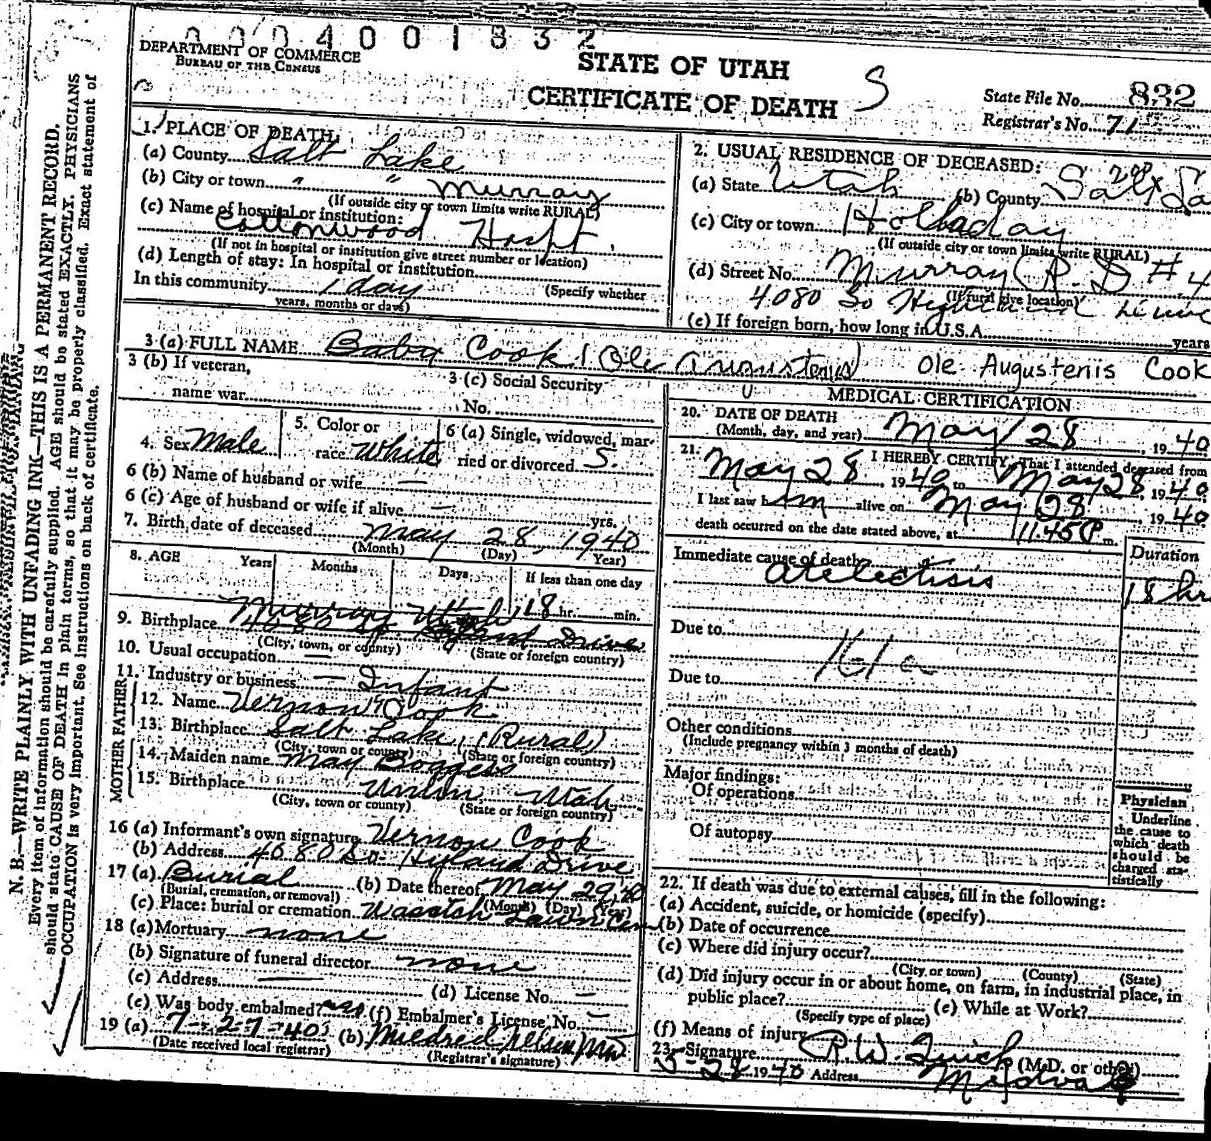 0004001832
DEPARTMENT OF COMMERCE
BUREAU OF THE CENSUS
STATE OF UTAH
CERTIFICATE OF DEATH S
State File No. 832
Registrar's No. 71
1. PLACE OF DEATH:
(a) County Salt Lake
(b) City or town " " Murray
(If outside city or town limits write RURAL)
(c) Name of hospital or institution:
Cottonwood Hospt.
(If not in hospital or institution give street number or location)
(d) Length of stay: In hospital or institution
In this community 1 day (Specify whether
years, months or days)
2. USUAL RESIDENCE OF DECEASED:
(a) State Utah (b) County Salt La
(c) City or town Holladay
(If outside city or town limits write RURAL)
(d) Street No. Murray R.D #4
(If rural give location)
4080 So Highland
(e) If foreign born, how long in U.S.A. years
3 (a) FULL NAME Baby Cook (Ole Augustenis) Ole Augustenis Cook
3 (b) If veteran,
name war
3 (c) Social Security
No.
4. Sex Male
5. Color or
race White
6 (a) Single, widowed, mar-
ried or divorced S.
6 (b) Name of husband or wife —
6 (c) Age of husband or wife if alive — yrs.
7. Birth date of deceased May 28, 1940
(Month) (Day) (Year)
8. AGE Years Months Days If less than one day
18 hr. min.
9. Birthplace Murray Utah
(City, town, or county) (State or foreign country)
10. Usual occupation —
11. Industry or business — Infant
FATHER
12. Name Vernon Cook
13. Birthplace Salt Lake (Rural)
(City, town or county) (State or foreign country)
MOTHER
14. Maiden name May Boggess
15. Birthplace Union Utah
(City, town or county) (State or foreign country)
16 (a) Informant's own signature Vernon Cook
(b) Address 4080 So. Hyland Drive
17 (a) Burial (b) Date thereof May 29, 40
(Burial, cremation, or removal) (Month) (Day) (Year)
(c) Place: burial or cremation Wasatch Lawn Cem
18 (a) Mortuary none
(b) Signature of funeral director none
(c) Address — (d) License No. —
(e) Was body embalmed? no (f) Embalmer's License No. —
19 (a) 7-27-40 (b) Mildred Nelson
(Date received local registrar) (Registrar's signature)
MEDICAL CERTIFICATION
20. DATE OF DEATH
(Month, day, and year) May 28 1940
21. I HEREBY CERTIFY, That I attended deceased from
May 28 1940 to May 28 1940
I last saw him alive on May 28 1940
death occurred on the date stated above, at 11.45 P m.
Immediate cause of death Duration
atelectisis 18 hr
Due to
161a
Due to
Other conditions
(Include pregnancy within 3 months of death)
Major findings:
Of operations
Of autopsy
Physician
Underline
the cause to
which death
should be
charged sta-
tistically
22. If death was due to external causes, fill in the following:
(a) Accident, suicide, or homicide (specify)
(b) Date of occurrence
(c) Where did injury occur?
(City or town) (County) (State)
(d) Did injury occur in or about home, on farm, in industrial place, in
public place? (e) While at Work?
(Specify type of place)
(f) Means of injury
23. Signature R. W. Quick (M.D. or other)
5-28 1940 Address Midvale
N. B.—WRITE PLAINLY, WITH UNFADING INK—THIS IS A PERMANENT RECORD.
Every item of information should be carefully supplied. AGE should be stated EXACTLY. PHYSICIANS
should state CAUSE OF DEATH in plain terms, so that it may be properly classified. Exact statement of
OCCUPATION is very important. See instructions on back of certificate.